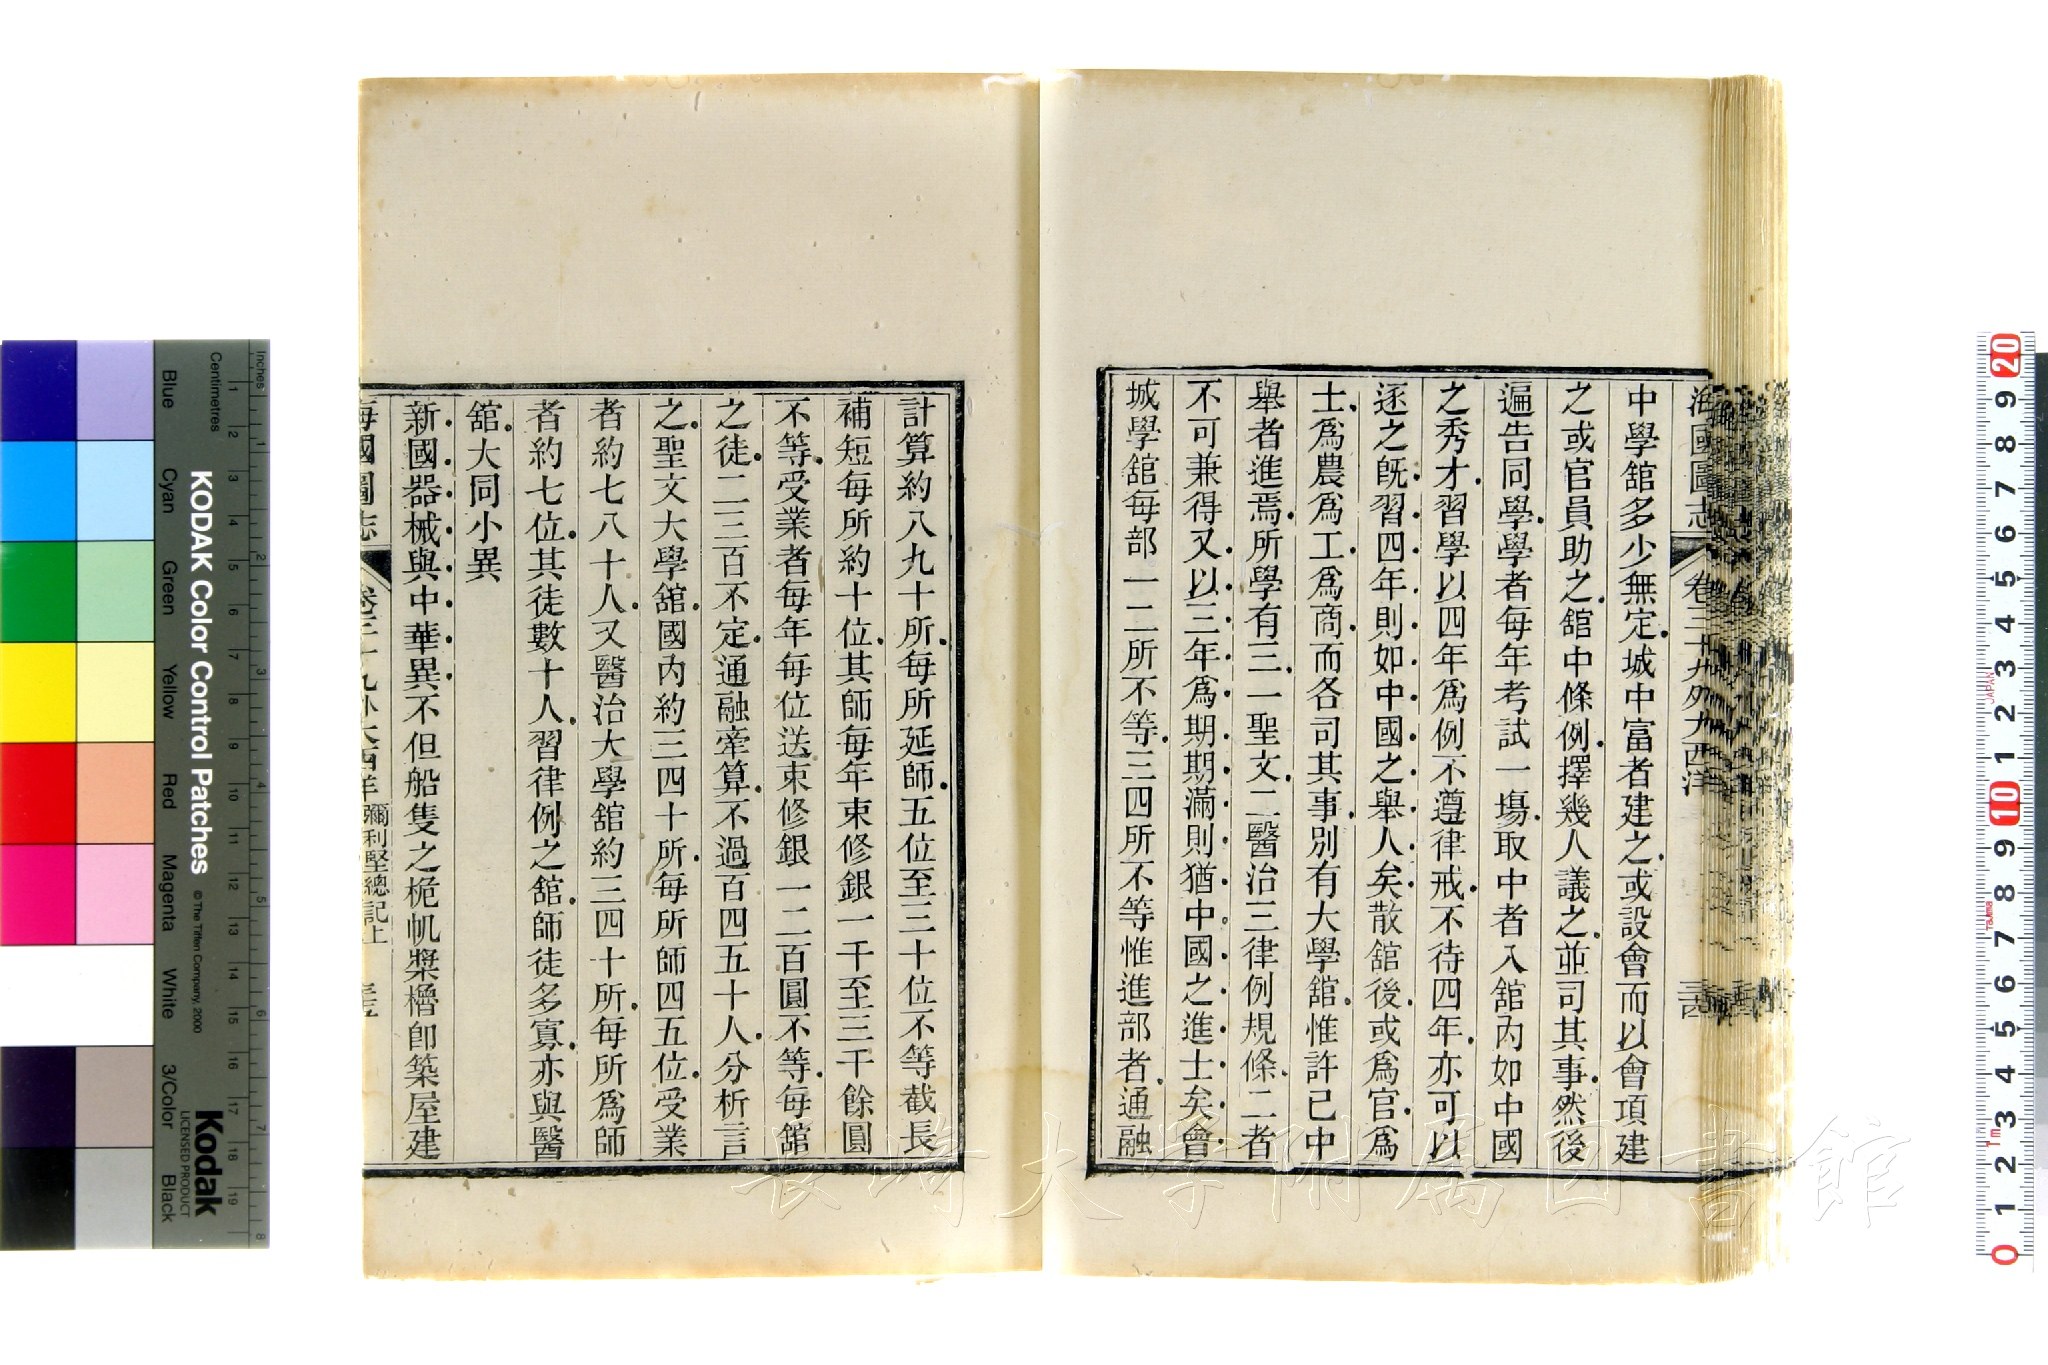 海國圖志 卷三十九外大西洋 三四
中學舘多少無定城中富者建之或設會而以會項建
之或官員助之舘中條例擇幾人議之並司其事然後
遍告同學學者每年考試一塲取中者入舘內如中國
之秀才習學以四年爲例不遵律戒不待四年亦可以
逐之旣習四年則如中國之舉人矣散舘後或爲官爲
士爲農爲工爲商而各司其事別有大學舘惟許已中
舉者進焉所學有三一聖文二醫治三律例規條二者
不可兼得又以三年爲期期滿則猶中國之進士矣會
城學舘每部一二所不等三四所不等惟進部者通融
計算約八九十所每所延師五位至三十位不等截長
補短每所約十位其師每年束修銀一千至三千餘圓
不等受業者每年每位送束修銀一二百圓不等每舘
之徒二三百不定通融牽算不過百四五十人分析言
之聖文大學舘國內約三四十所每所師四五位受業
者約七八十人又醫治大學舘約三四十所每所爲師
者約七位其徒數十人習律例之舘師徒多寡亦與醫
舘大同小異
新國器械與中華異不但船隻之桅帆槳櫓卽築屋建
海國圖志 卷三十九外大西洋 彌利堅總記上 三五
長崎大学附属図書館
KODAK Color Control Patches © The Tiffen Company, 2000
Kodak
LICENSED PRODUCT
Blue Cyan Green Yellow Red Magenta White 3/Color Black
Inches 1 2 3 4 5 6 7 8
Centimetres 1 2 3 4 5 6 7 8 9 10 11 12 13 14 15 16 17 18 19
20 9 8 7 6 5 4 3 2 1 10 9 8 7 6 5 4 3 2 1 0
JAPAN